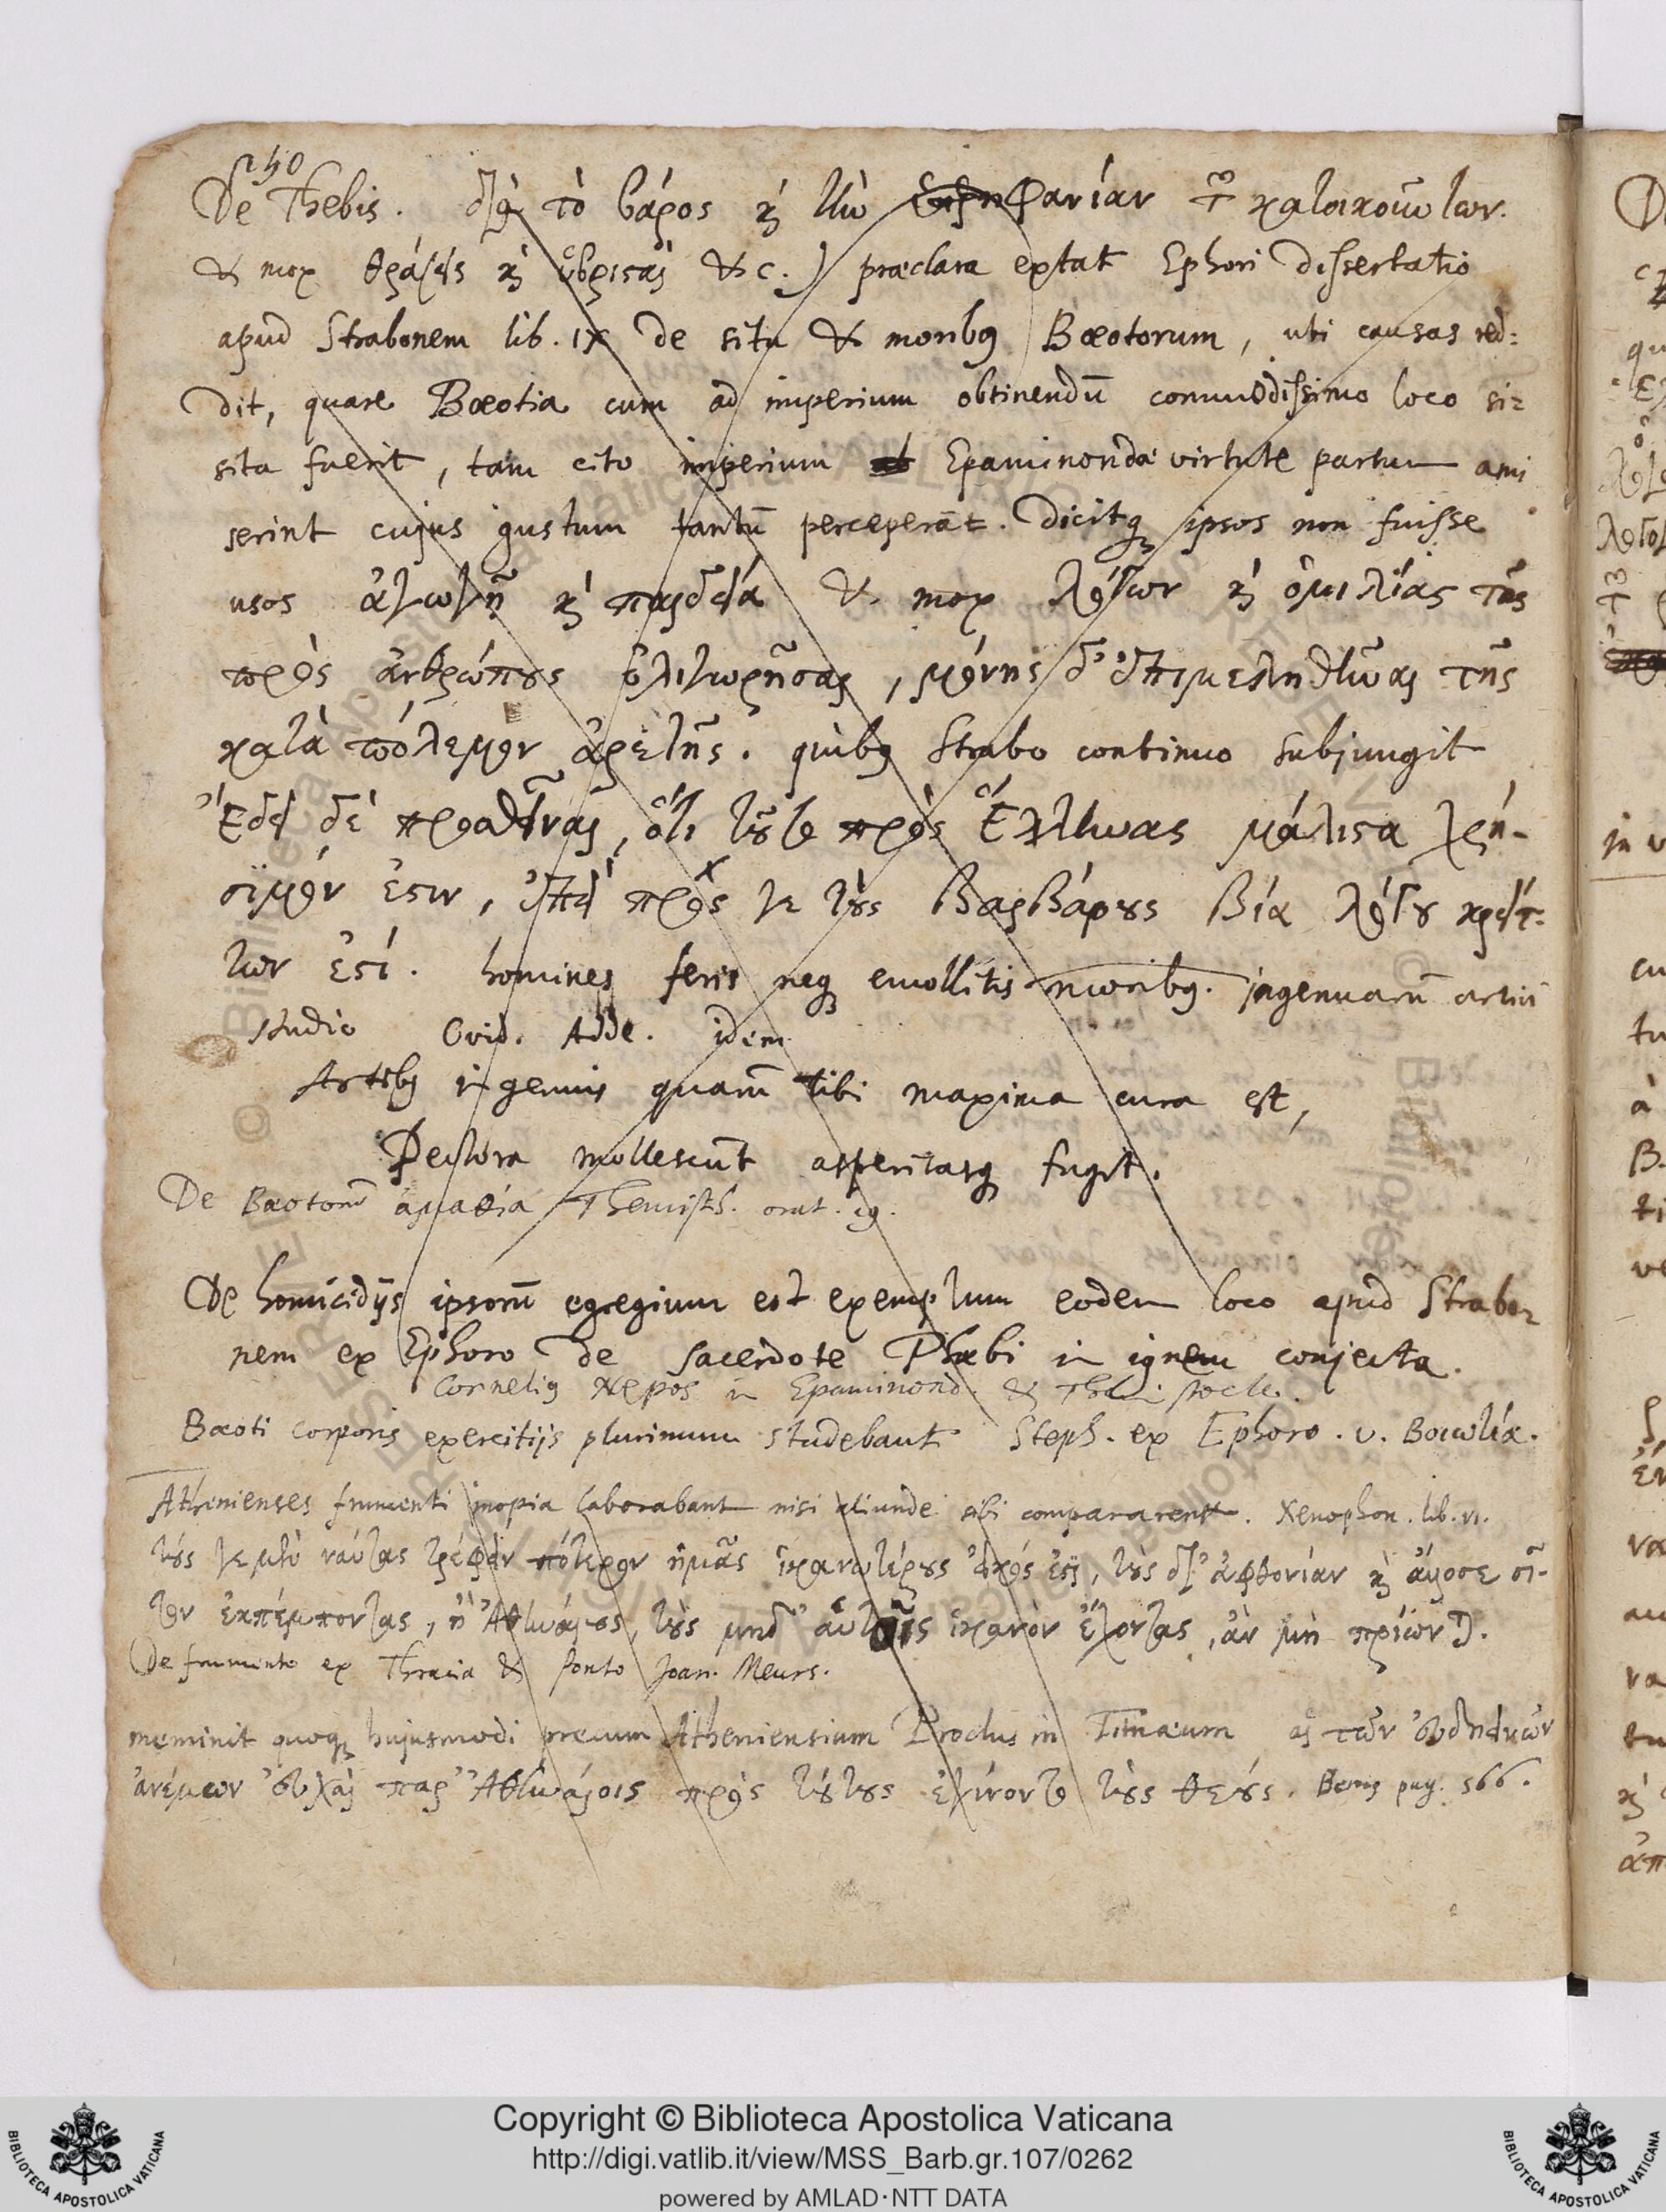 p 40
De Thebis. διὰ τὸ βάρος κ̀ τ̀ὼ φανίαν τ̃ κατοικούντων.
& mox θράσεις κ̀ ὑβρισταὶ &c.) præclara extat Ephori dissertatio
apud Strabonem lib. IX de situ & moribꝰ Bœotorum, ubi causas red:
dit, quare Bœotia cum ad imperium obtinendū commodissimo loco si:
sita fuerit, tam cito imperium Epaminondæ virtute partum ami
serint cujus gustum tantū perceperāt. Dicitq; ipsos non fuisse
usos ἀγωγῇ κ̀ παιδείᾳ & mox λόγων κ̀ ὁμιλίας τῆς
πρὸς ἀνθρώπους ὀλιγωρῆσαι, μόνης δ' ἐπιμεληθῆναι τῆς
κατὰ πόλεμον ἀρετῆς. quibꝰ Strabo continuo subjungit
Ἔδει δὲ προσθεῖναι, ὅτι τοῦτο πρὸς Ἕλληνας μάλιστα χρή-
σιμόν ἐστιν, ἐπεὶ πρὸς γε τοὺς βαρβάρους βία λόγου κρείτ-
των ἐστί. homines feris neq; emollitis moribꝰ. ingenuarū artiū
studio Ovid. Adde. idem
Artibꝰ ingenuis quarū tibi maxima cura est,
Pectora mollescūt asperitasq; fugit.
De Bœotorū ἀμαθία Themisth. orat.
De homicidijs ipsorū egregium est exemplum eodem loco apud Strabo-
nem ex Ephoro de sacerdote Phœbi in ignem conjecta.
Corneliꝰ Nepos in Epaminond. &
Bœoti corporis exercitijs plurimum studebant Steph. ex Ephoro. v. Βοιωτία.
Athenienses frumenti inopia laborabant nisi aliunde sibi compararent. Xenophon. lib. VI.
τούς γε μὴν ναύτας τρέφειν πότερον ἡμᾶς ἱκανωτέρους εἰκός ἐστι, τοὺς δι' ἀφθονίαν κ̀ ἄλλοσε σῖ-
τον ἐκπέμποντας, ἢ Ἀθηναίους, τοὺς μηδ' αὐτοῖς ἱκανὸν ἔχοντας, ἂν μὴ πρίωνται.
De frumento ex Thracia & Ponto Joan. Meurs.
meminit quoq; hujusmodi precum Atheniensium Proclus in Timæum αἱ τῶν εὐδιεινῶν
ἀνέμων εὐχαὶ παρ' Ἀθηναίοις πρὸς τούτους ἐγίνοντο τοὺς θεούς. pag. 566.
Copyright © Biblioteca Apostolica Vaticana
http://digi.vatlib.it/view/MSS_Barb.gr.107/0262
powered by AMLAD·NTT DATA